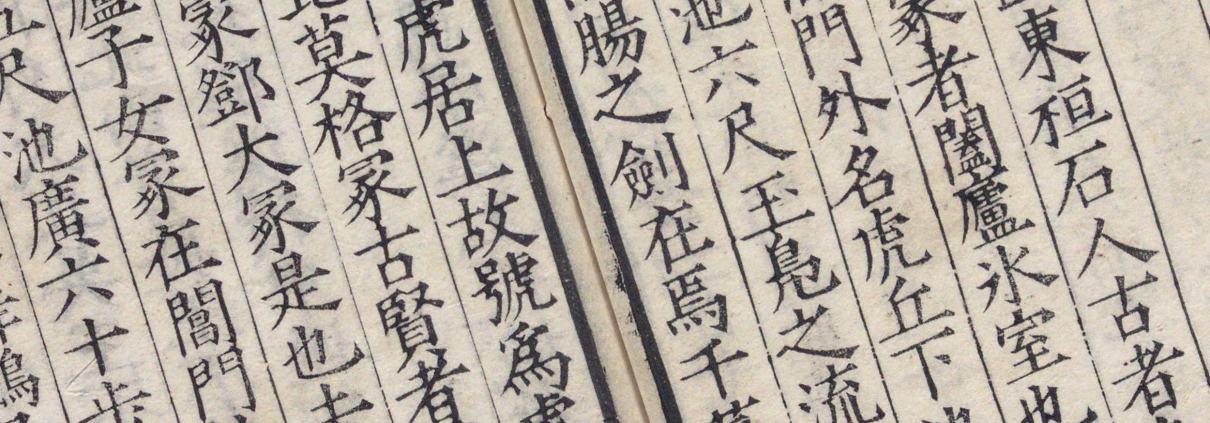 東桓石人古者
冢者闔廬氷室也
門外名虎丘下
池六尺玉鳧之流
腸之劍在焉千
虎居上故號爲虎
莫格冢古賢者
冢鄧大冢是也去
廬子女冢在閶門
尺池廣六十步